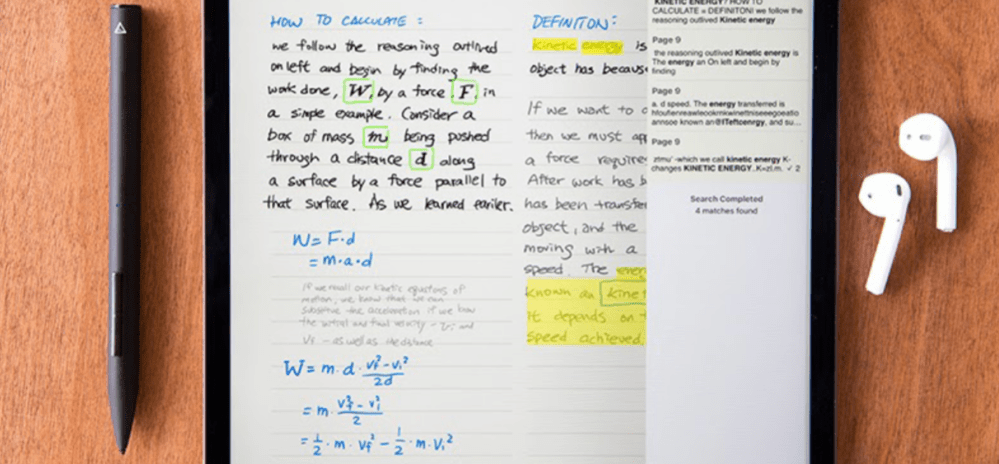 HOW TO CALCULATE :
we follow the reasoning outlined
on left and begin by finding the
work done, W, by a force F, in
a simple example. Consider a
box of mass m being pushed
through a distance d along
a surface by a force parallel to
that surface. As we learned earlier.
W = F·d
= m·a·d
If we recall our kinetic equations of
motion, we know that we can
substitute the acceleration if we know
the initial and final velocity - vi and
Vf - as well as the distance
W = m·d· vf²-vi²/2d
= m· vf²-vi²/2
= 1/2·m·vf² - 1/2·m·vi²
DEFINITON:
kinetic energy is
object has becaus
If we want to
then we must ap
a force require
After work has b
has been transfe
object, and the
moving with a
speed. The ener
known an kinet
it depends on t
speed achieved.
KINETIC ENERGY? HOW TO
CALCULATE = DEFINITONI we follow the
reasoning outlived Kinetic energy
Page 9
the reasoning outlived Kinetic energy is
The energy an On left and begin by
finding
Page 9
a. d speed. The energy transferred is
Page 9
-which we call kinetic energy K-
changes KINETIC ENERGY..K=zl.m. ✓ 2
Search Completed
4 matches found